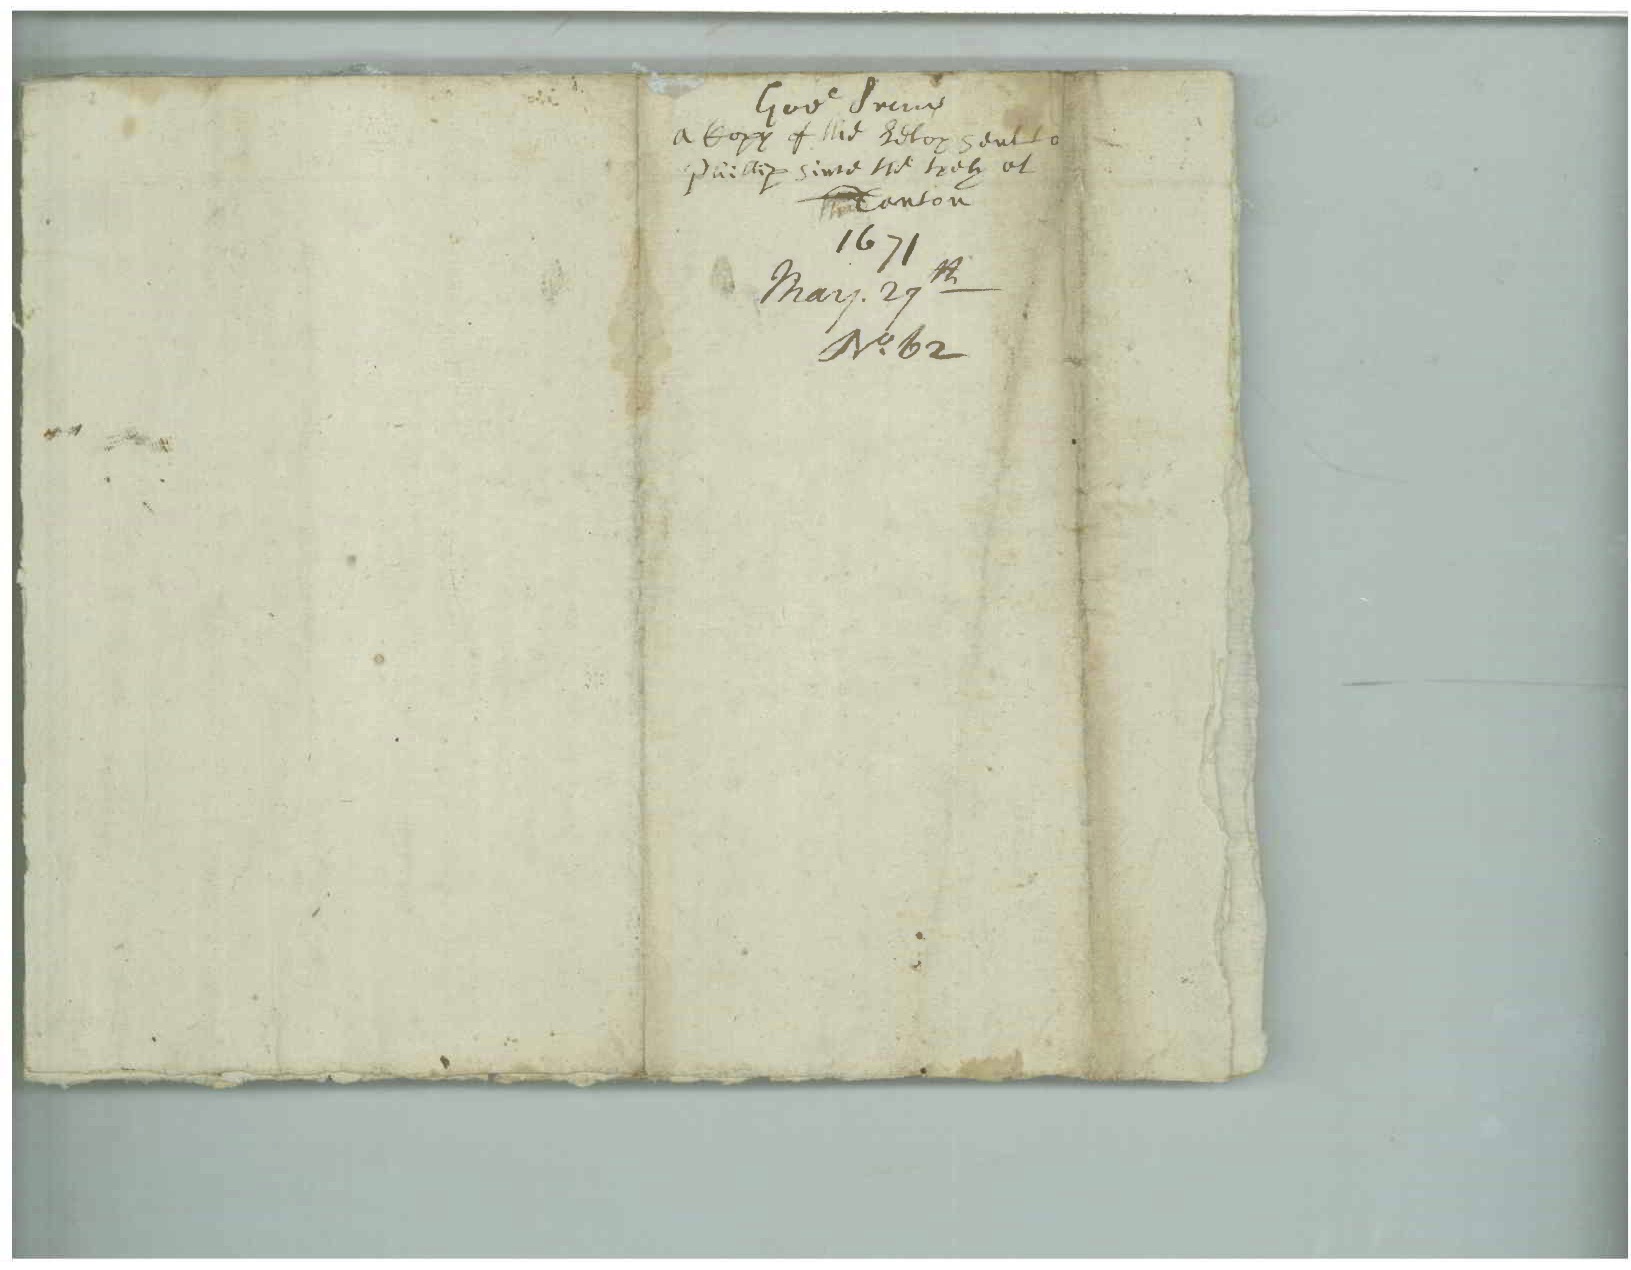 Gov^r Prence
a Copy of the Letter sent to
Phillip since the trety at
Tanton
1671
May. 27^th
No. 62